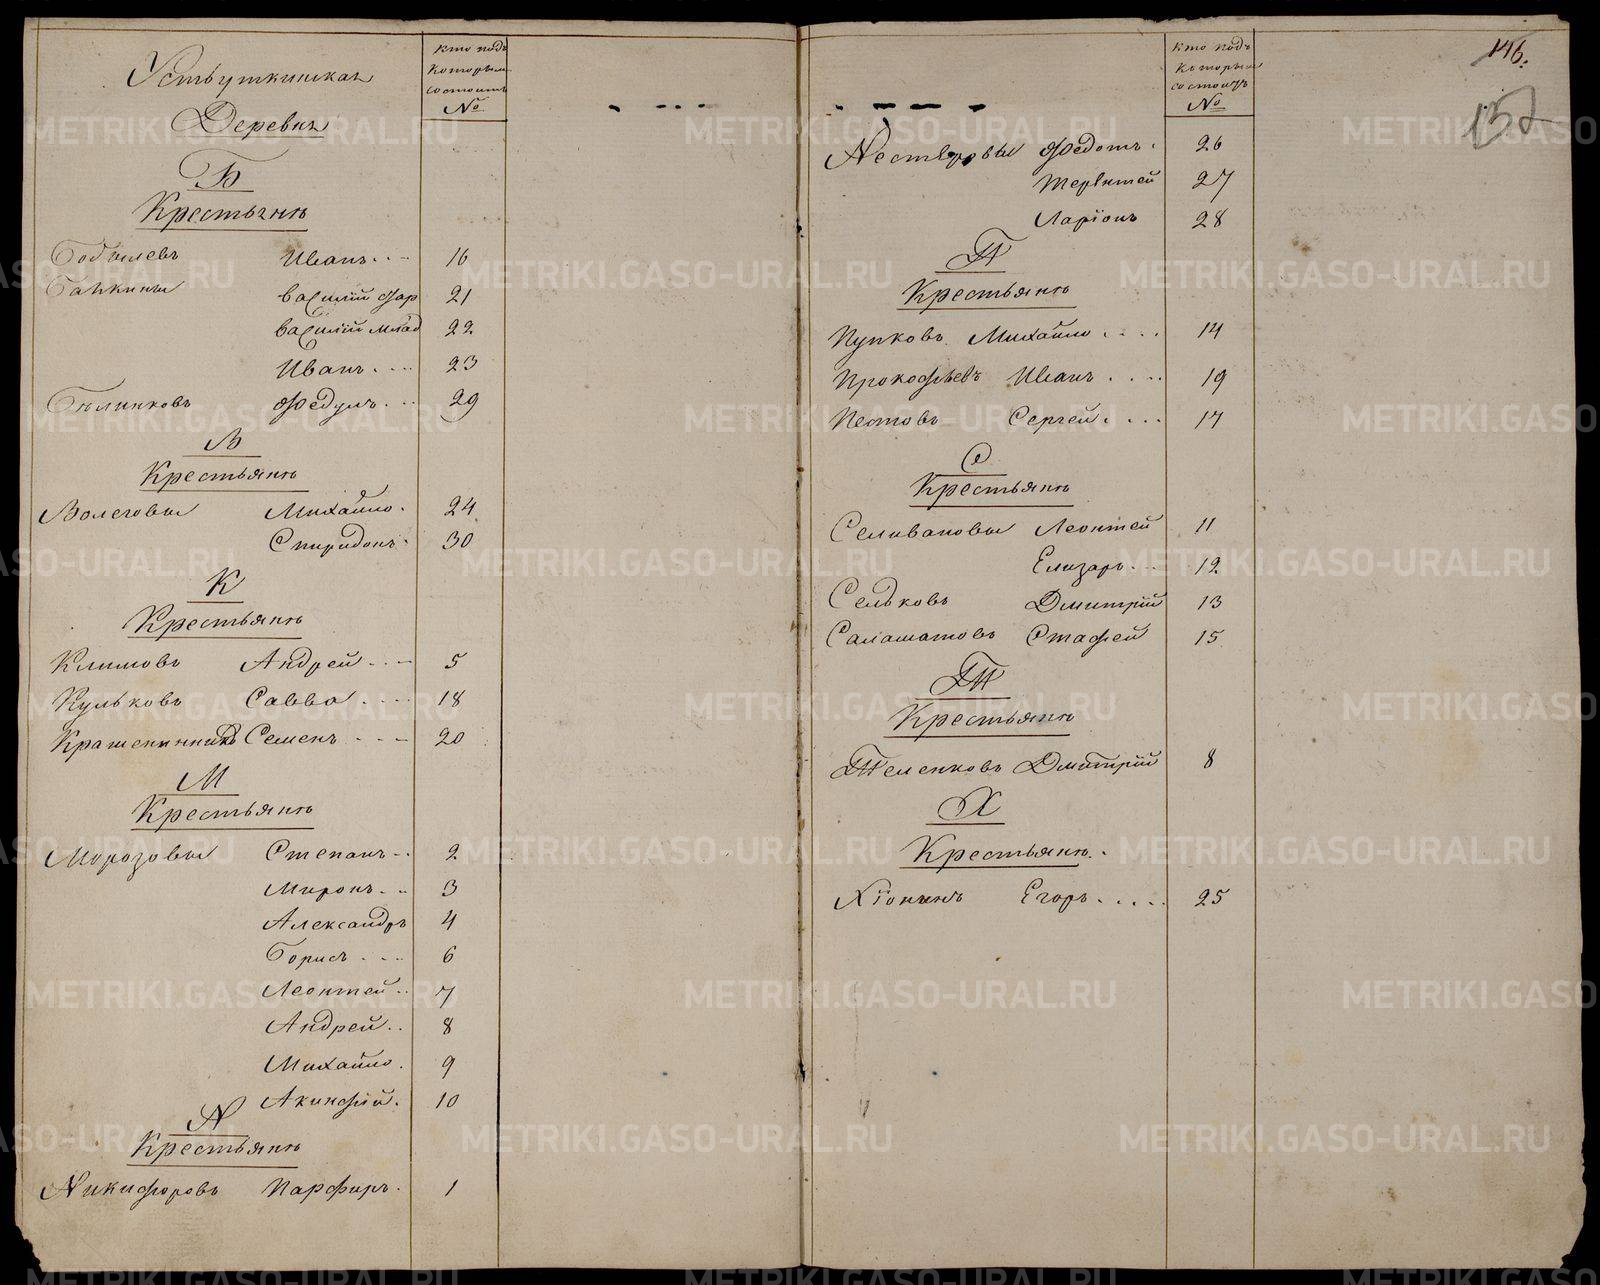 Устьуткинская
Деревня
Б
Крестьянѣ
кто подъ
которым
состоитъ
№
Бобылевъ Иванъ 16
Банкины Василій Стар 21
Василій млад 22
Иванъ 23
Бѣлинковъ Федулъ 29
В
Крестьянѣ
Волеговы Михайло 24
Спиридонъ 30
К
Крестьянѣ
Климовъ Андрей 5
Кульковъ Савва 18
Крашенинниковъ Семенъ 20
М
Крестьянѣ
Морозовы Степанъ 2
Миронъ 3
Александръ 4
Борисъ 6
Леонтей 7
Андрей 8
Михайло 9
Акинфій 10
N
Крестьянѣ
Никифоровъ Парфиръ 1
кто подъ
которым
состоитъ
№
146.
132
Нестеровы Федотъ 26
Терентей 27
Ларіонъ 28
П
Крестьянѣ
Пупковъ Михайло 14
Прокофьевъ Иванъ 19
Пестовъ Сергей 17
С
Крестьянѣ
Селивановы Леонтей 11
Елизаръ 12
Сельковъ Дмитрій 13
Саламатовъ Стафей 15
Т
Крестьянѣ
Теленковъ Дмитрій 8
Х
Крестьянѣ
Хіонинъ Егоръ 25
METRIKI.GASO-URAL.RU